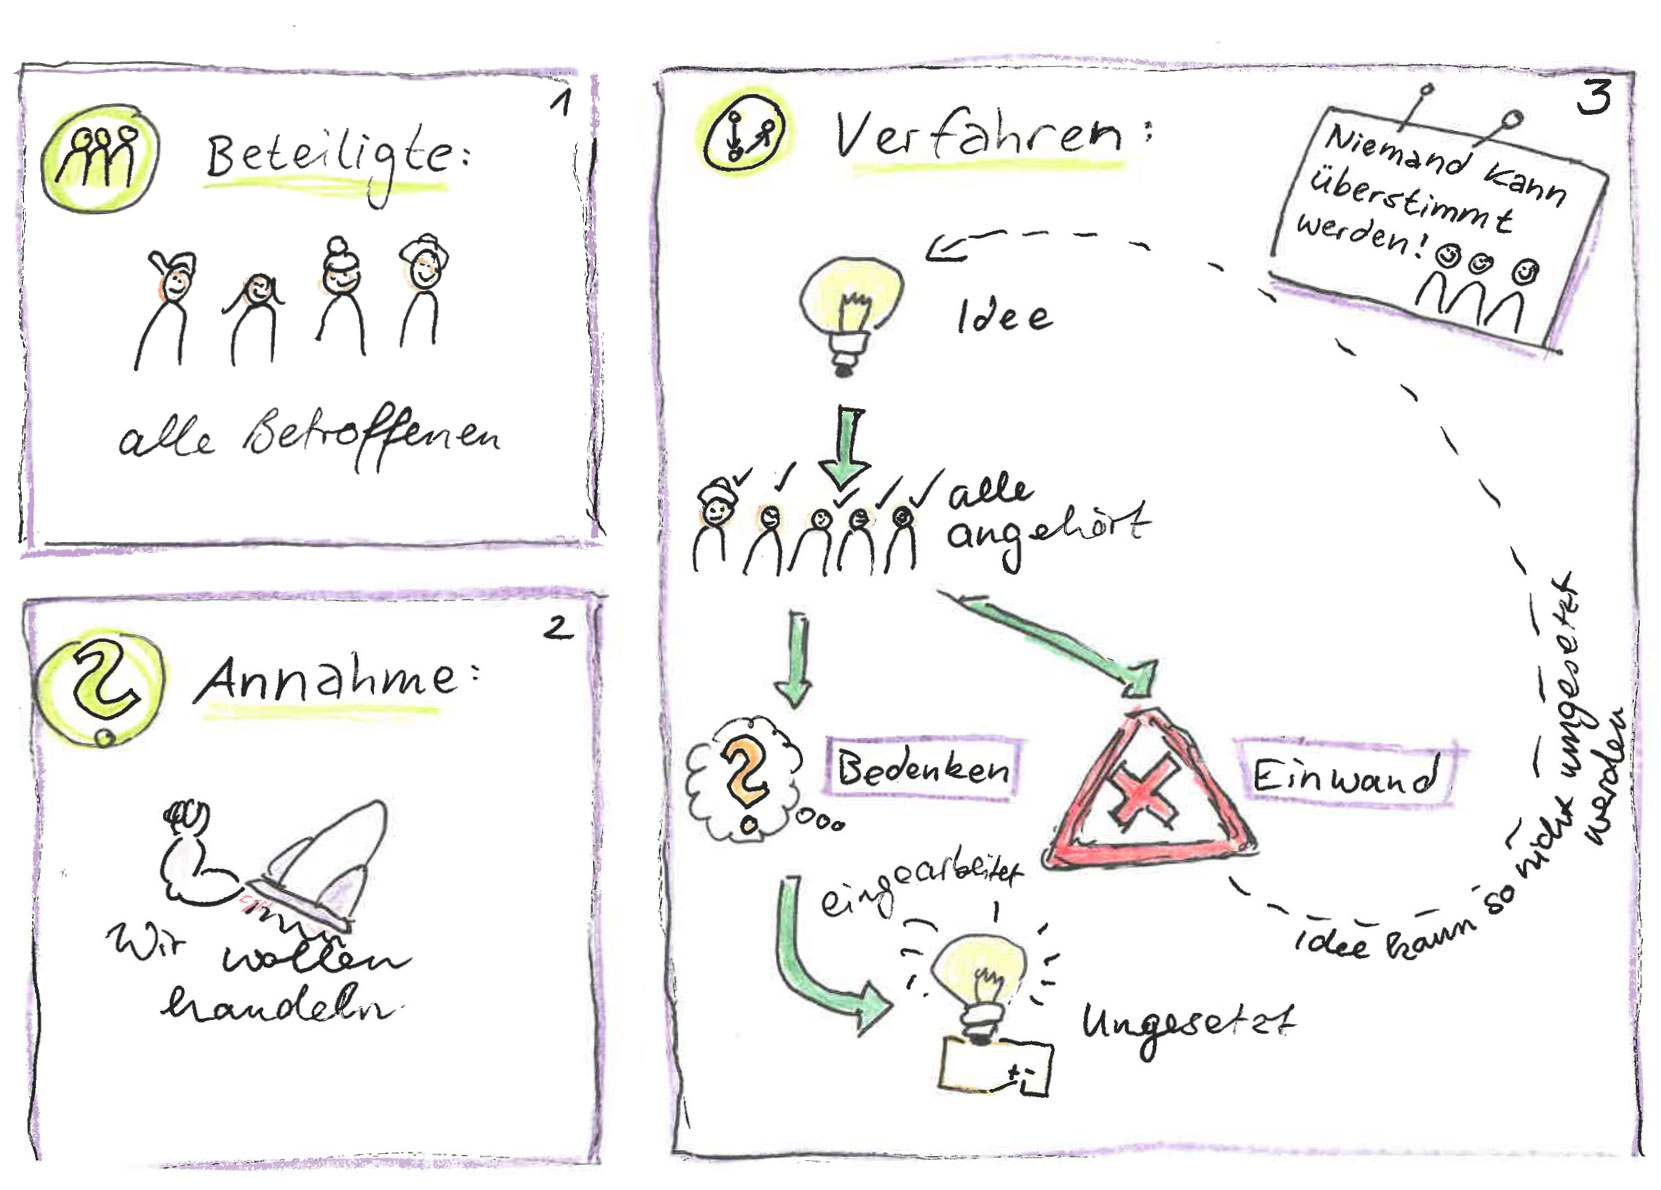 1
Beteiligte:
alle Betroffenen
2
Annahme:
Wir wollen
handeln
3
Verfahren:
Niemand kann
überstimmt
werden!
Idee
alle
angehört
Bedenken
Einwand
eingearbeitet
Umgesetzt
idee kann so nicht umgesetzt
werden